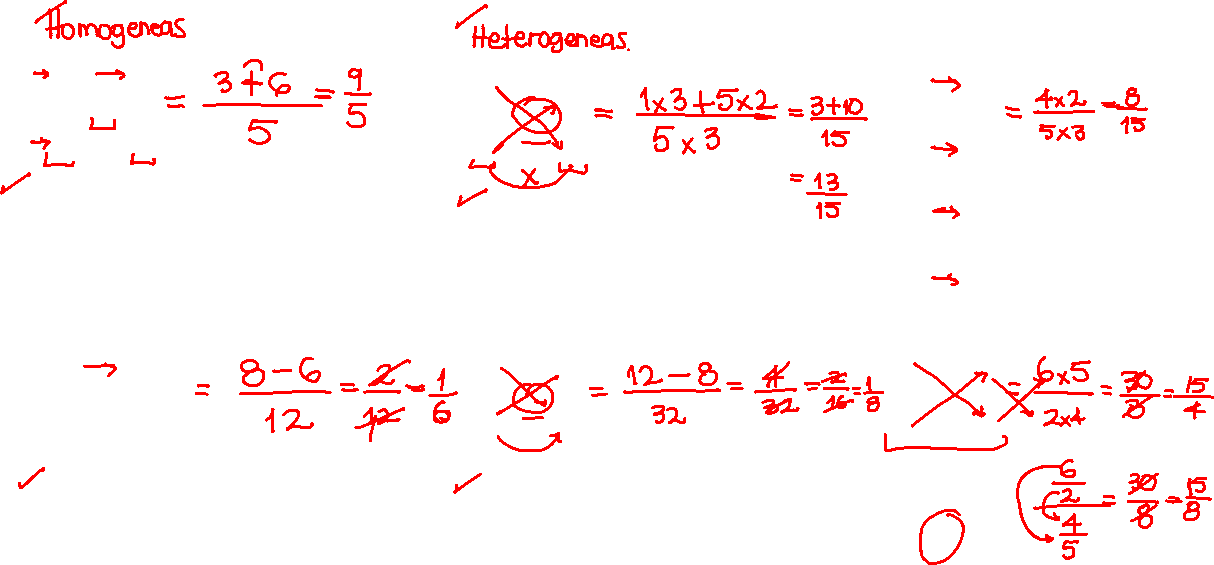 Homogeneas
Heterogeneas.
= 3+6/5 = 9/5
= 1x3+5x2/5x3 = 3+10/15
= 13/15
= 4x2/5x3 = 8/15
x
= 8-6/12 = 2/12 = 1/6
= 12-8/32 = 4/32 = 2/16 = 1/8
= 6x5/2x4 = 30/8 = 15/4
6/2/4/5 = 30/8 = 15/8